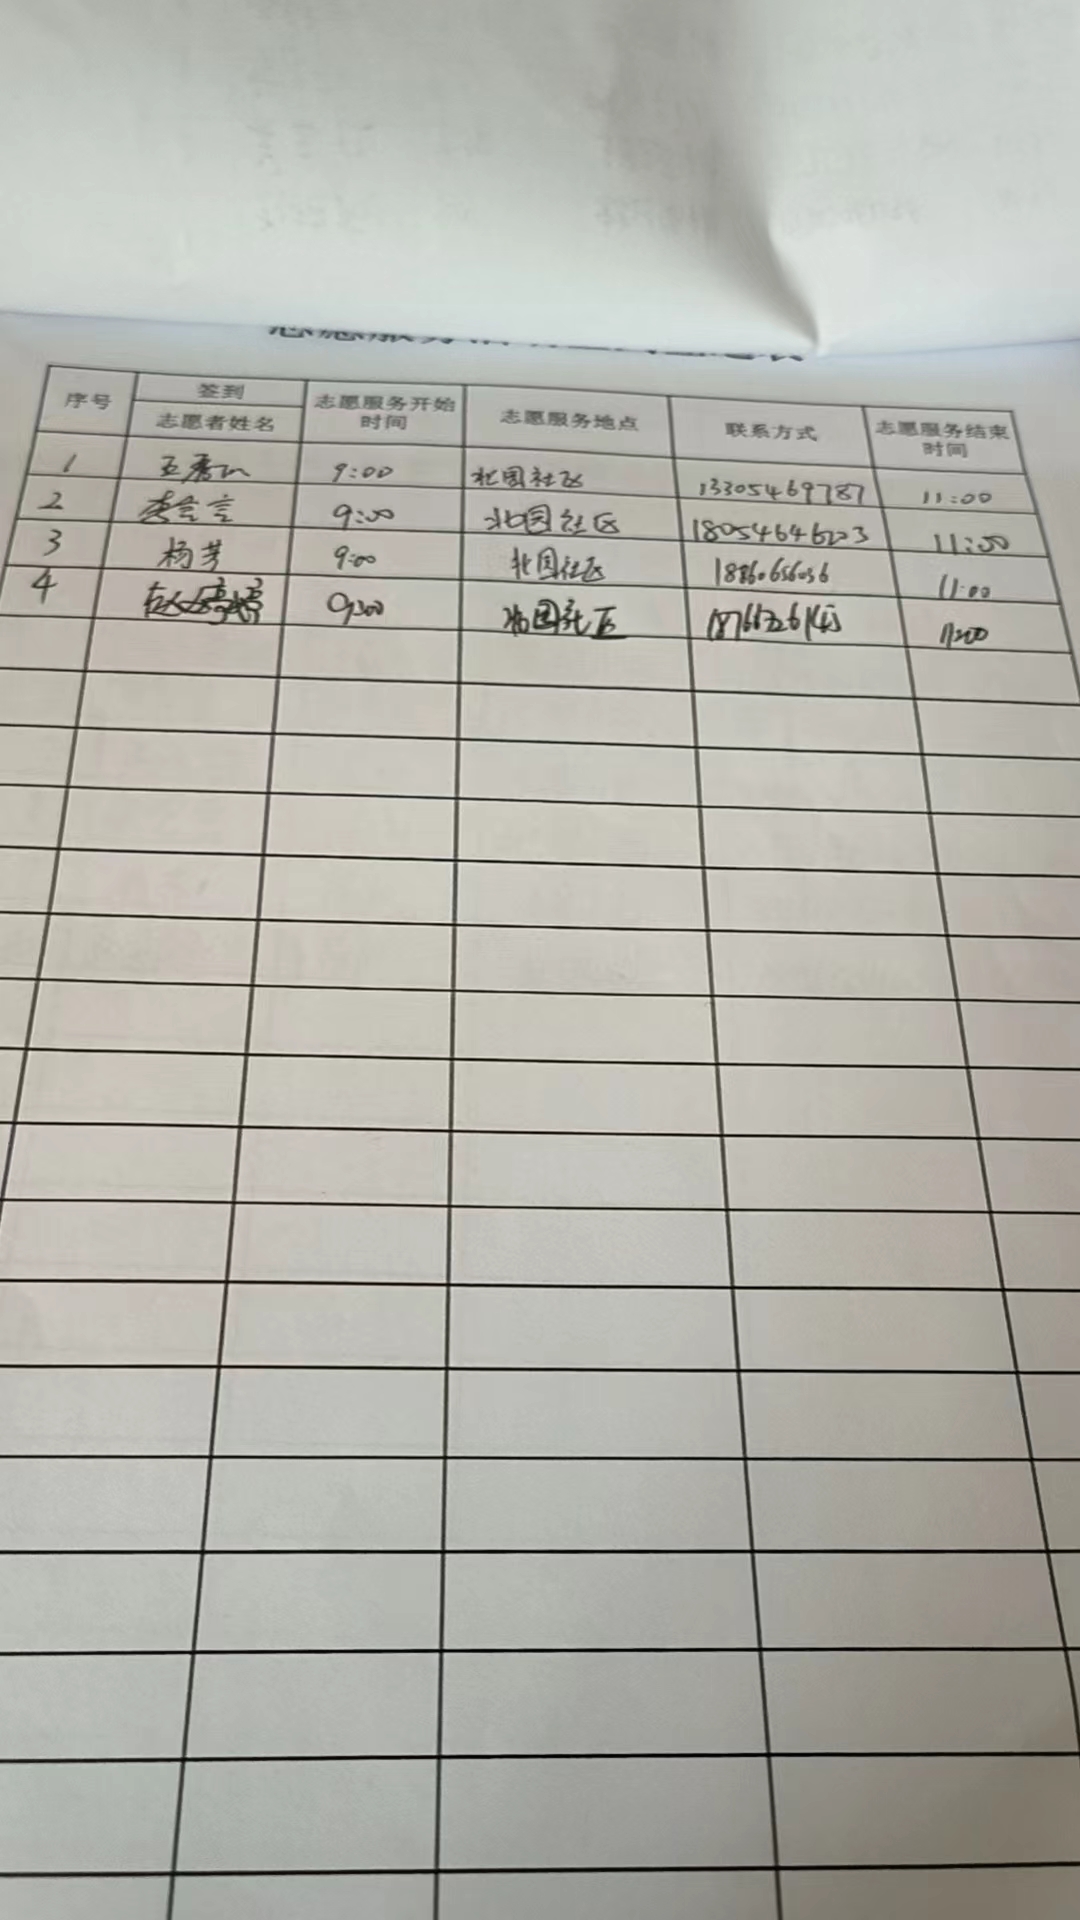 序号 签到 志愿服务开始时间 志愿服务地点 联系方式 志愿服务结束时间
志愿者姓名
1 9:00 北国社区 13305469787 11:00
2 李会言 9:00 北国社区 18054646223 11:00
3 杨芳 9:00 北国社区 18860656036 11:00
4 9:00 北国社区 11:00